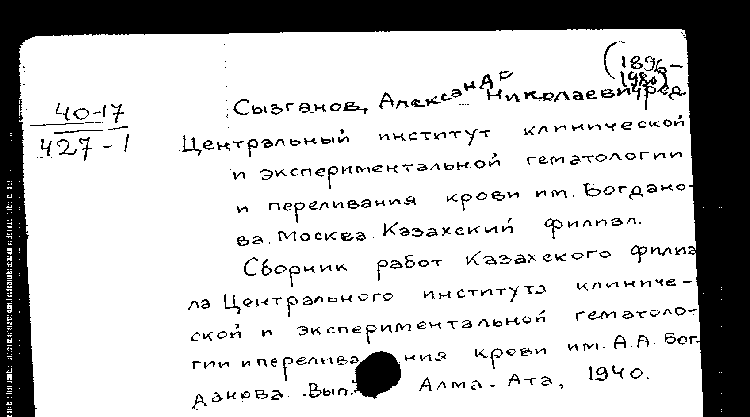 (1896-
1980)
40-17
427-1
Сызганов, Александр Николаевич, ред.
Центральный институт клинической
и экспериментальной гематологии
и переливания крови им. Богдано-
ва. Москва. Казахский филиал.
Сборник работ Казахского филиа
ла Центрального института клиниче-
ской и экспериментальной гематоло-
гии и перелива ния крови им. А.А. Бог-
данова. Вып. Алма-Ата, 1940.